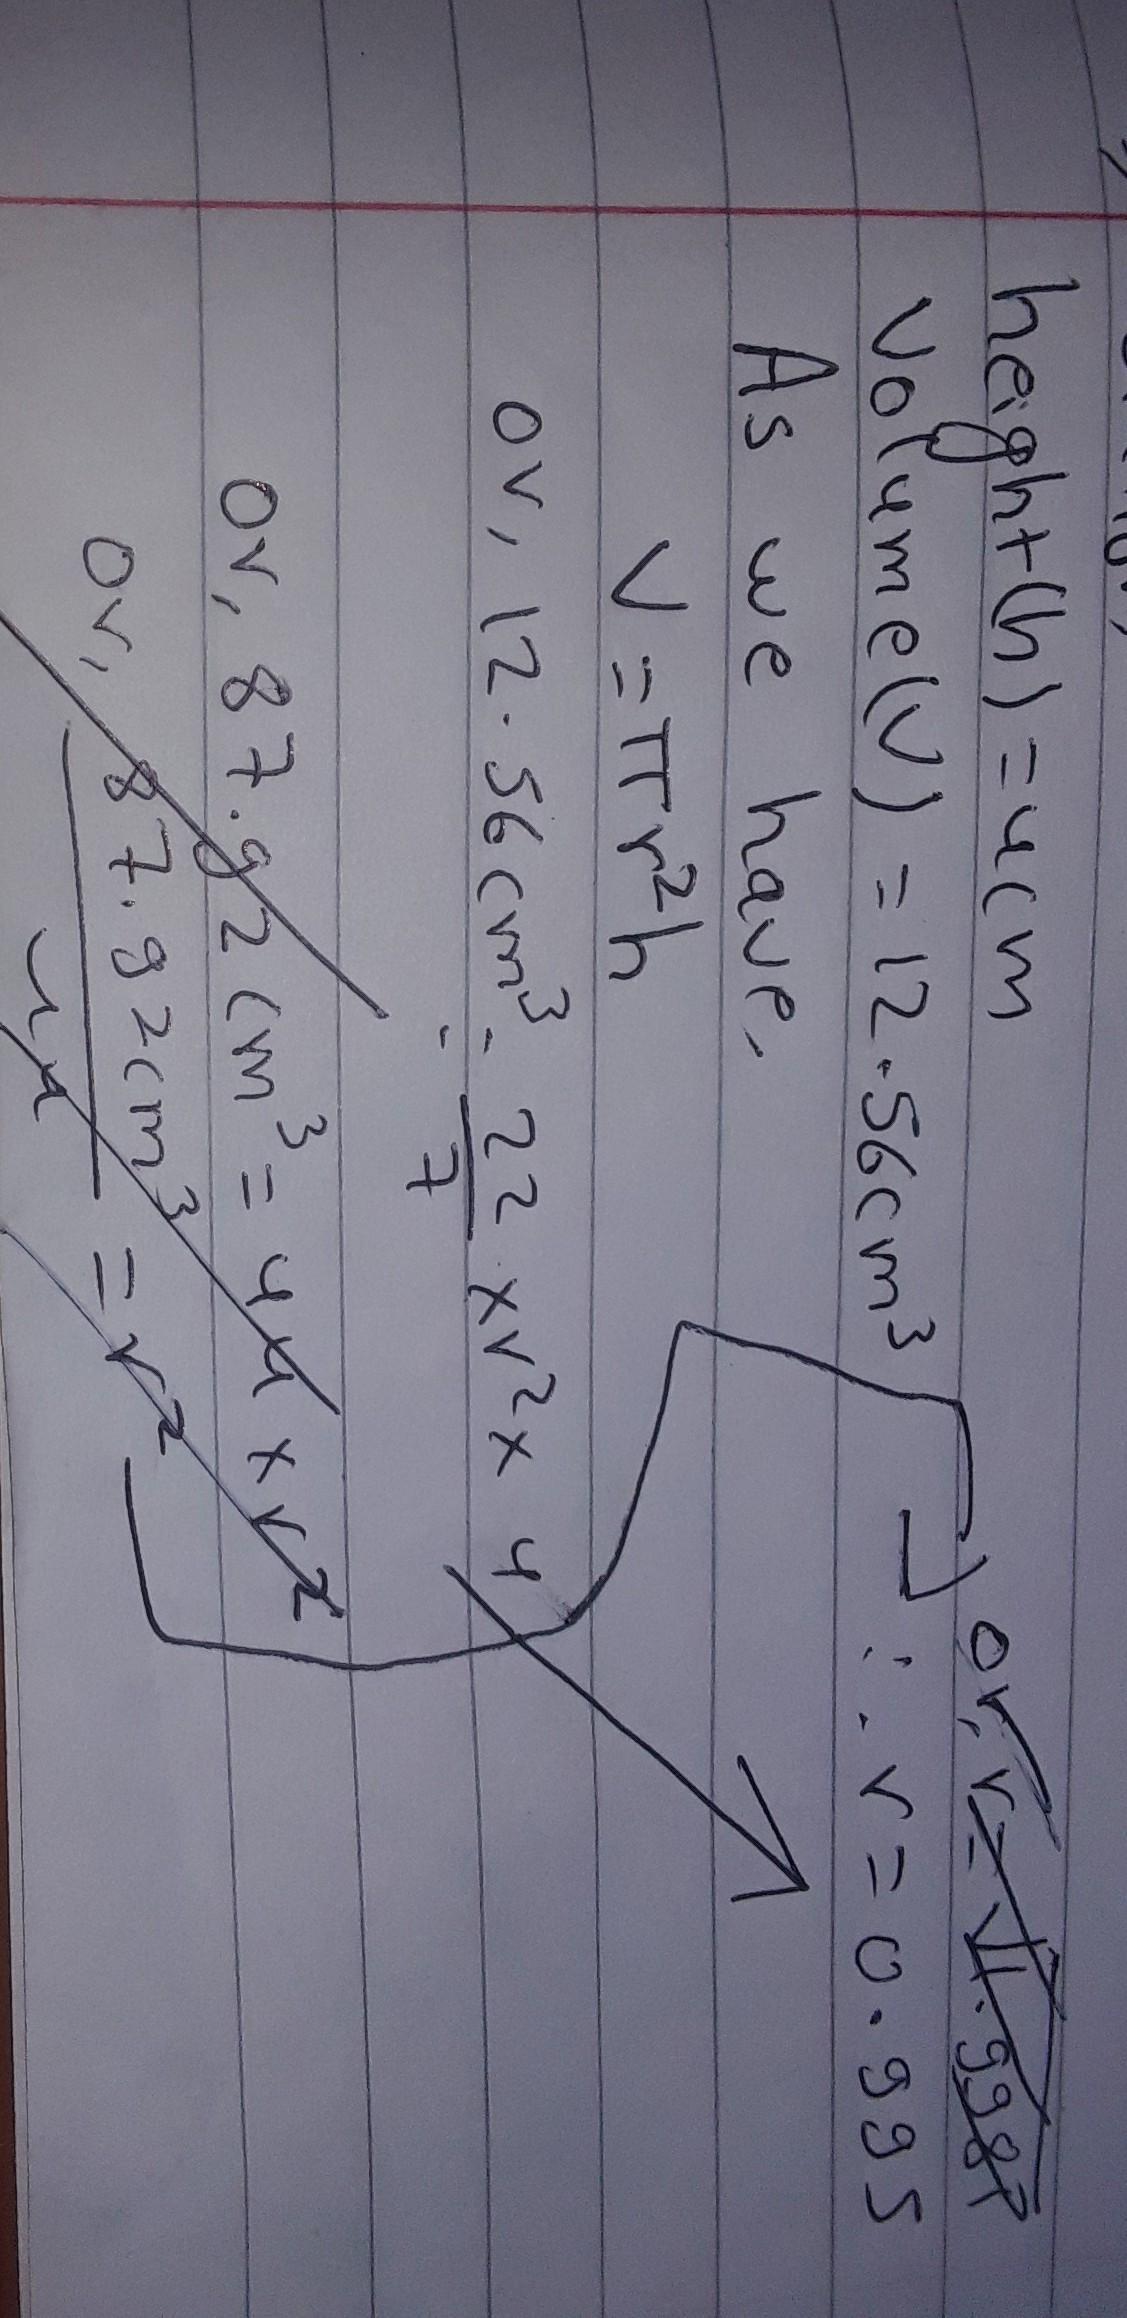 height(h) = 4cm
Volume(V) = 12.56cm³
As we have,
V = πr²h
or, 12.56cm³ = 22/7 × r² × 4
or, 87.92cm³ = 44 × r²
or, 87.92cm³/44 = r²
or, r = √1.998
∴ r = 0.995